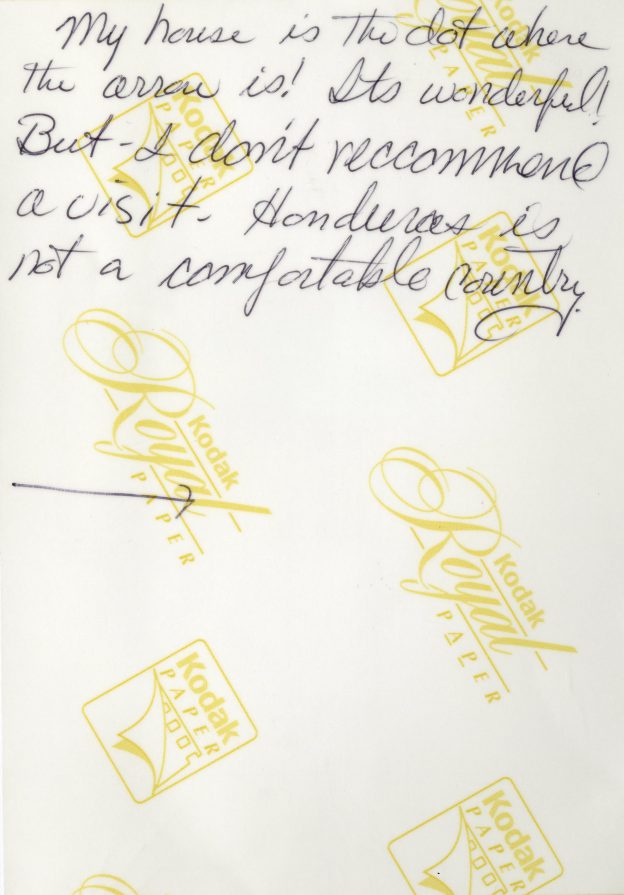 My house is the dot where
the arrow is! Its wonderful!
But - I don't reccommend
a visit - Honduras is
not a comfortable country.
Kodak
Royal
PAPER
Kodak
PAPER
Kodak
PAPER
Kodak
Royal
PAPER
Kodak
Royal
PAPER
Kodak
PAPER
Kodak
PAPER